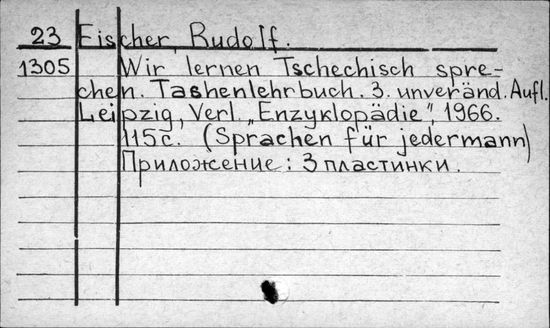 23 Eischer, Rudolf.
1305 Wir lernen Tschechisch spre-
chen. Tashenlehrbuch. 3. unveränd. Aufl.
Leipzig, Verl. „Enzyklopädie", 1966.
115с. (Sprachen für jedermann)
Приложение: 3 пластинки.